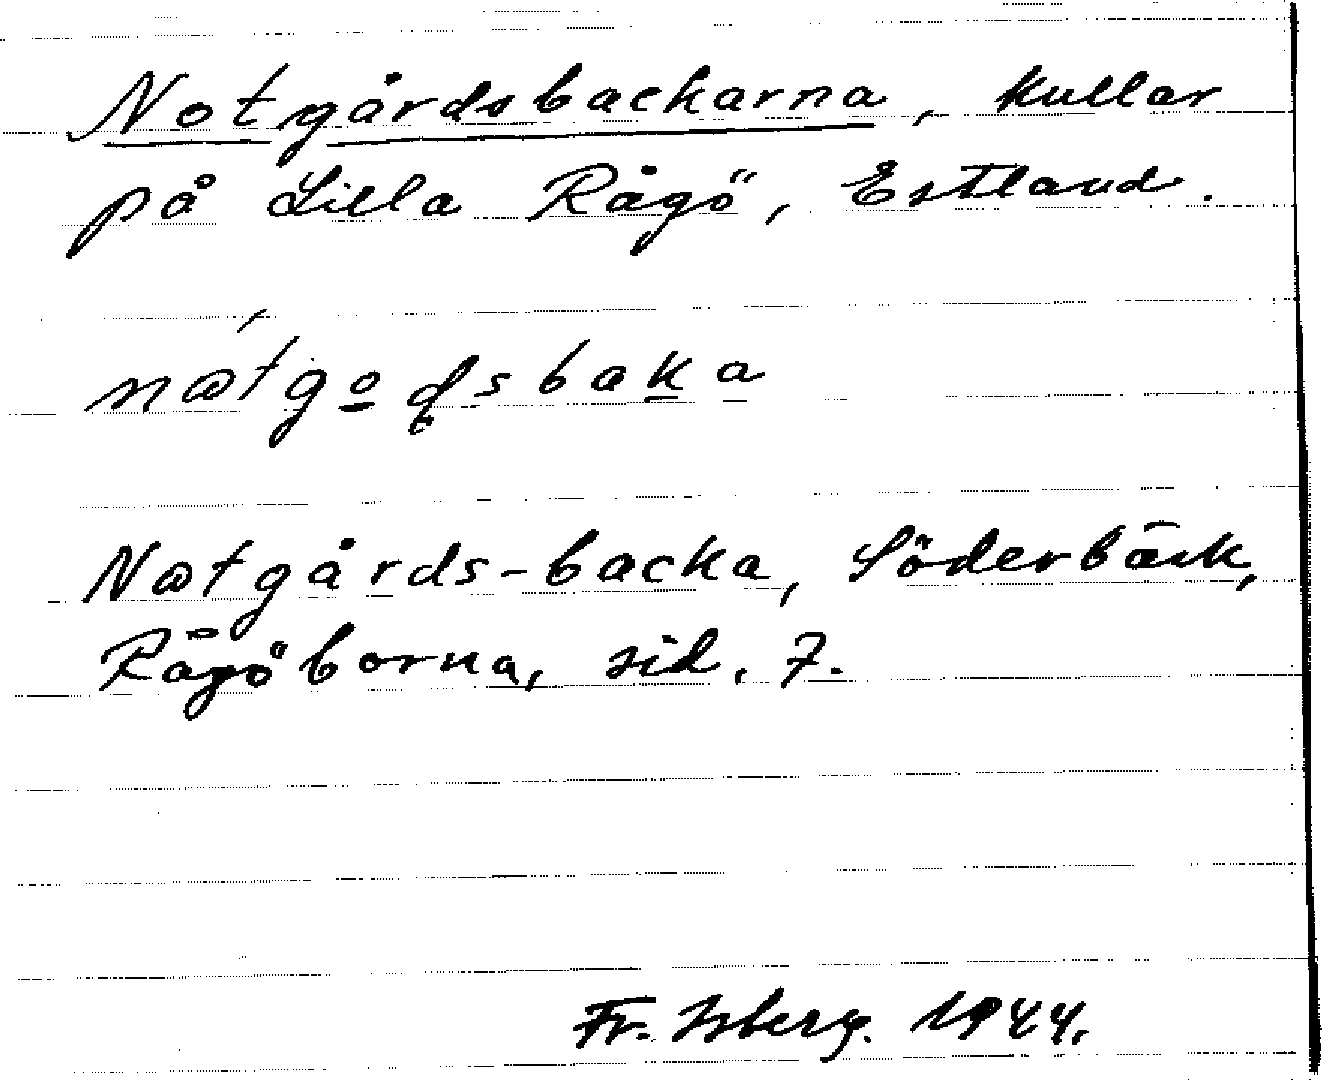 Notgårdsbackarna, kullar
på Lilla Rågö, Estland.
Natgårds-backa, Söderbäck,
Rågöborna, sid. 7.
Fr. Isberg. 1944.